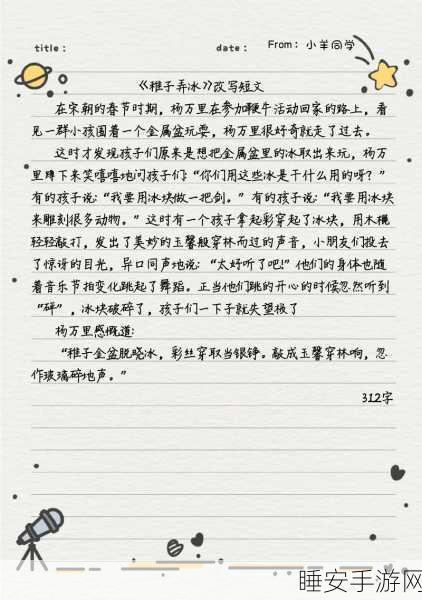 title： date： From：小羊同学
《稚子弄冰》改写短文
在宋朝的春节时期，杨万里在参加鞭牛活动回家的路上，看
见一群小孩围着一个金属盆玩耍，杨万里很好奇就走了过去。
这时才发现孩子们原来是想把金属盆里的冰取出来玩，杨万
里蹲下来笑嘻嘻地问孩子们："你们用这些冰是干什么用的呀？"
有的孩子说："我要用冰块做一把剑。"有的孩子说："我要用冰块
来雕刻很多动物。"这时有一个孩子拿起彩穿起了冰块，用木槌
轻轻敲打，发出了美妙的玉磬般穿林而过的声音，小朋友们投去
了惊讶的目光，异口同声地说："太好听了吧!"他们的身体也随
着音乐节拍变化跳起了舞蹈。正当他们跳的开心的时候忽然听到
"砰"，冰块破碎了，孩子们一下子就失望极了
杨万里感慨道：
"稚子金盆脱晓冰，彩丝穿取当银铮。敲成玉磬穿林响，忽
作玻璃碎地声。"
312字
睡安手游网